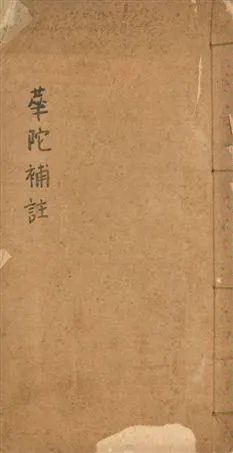 華陀補註